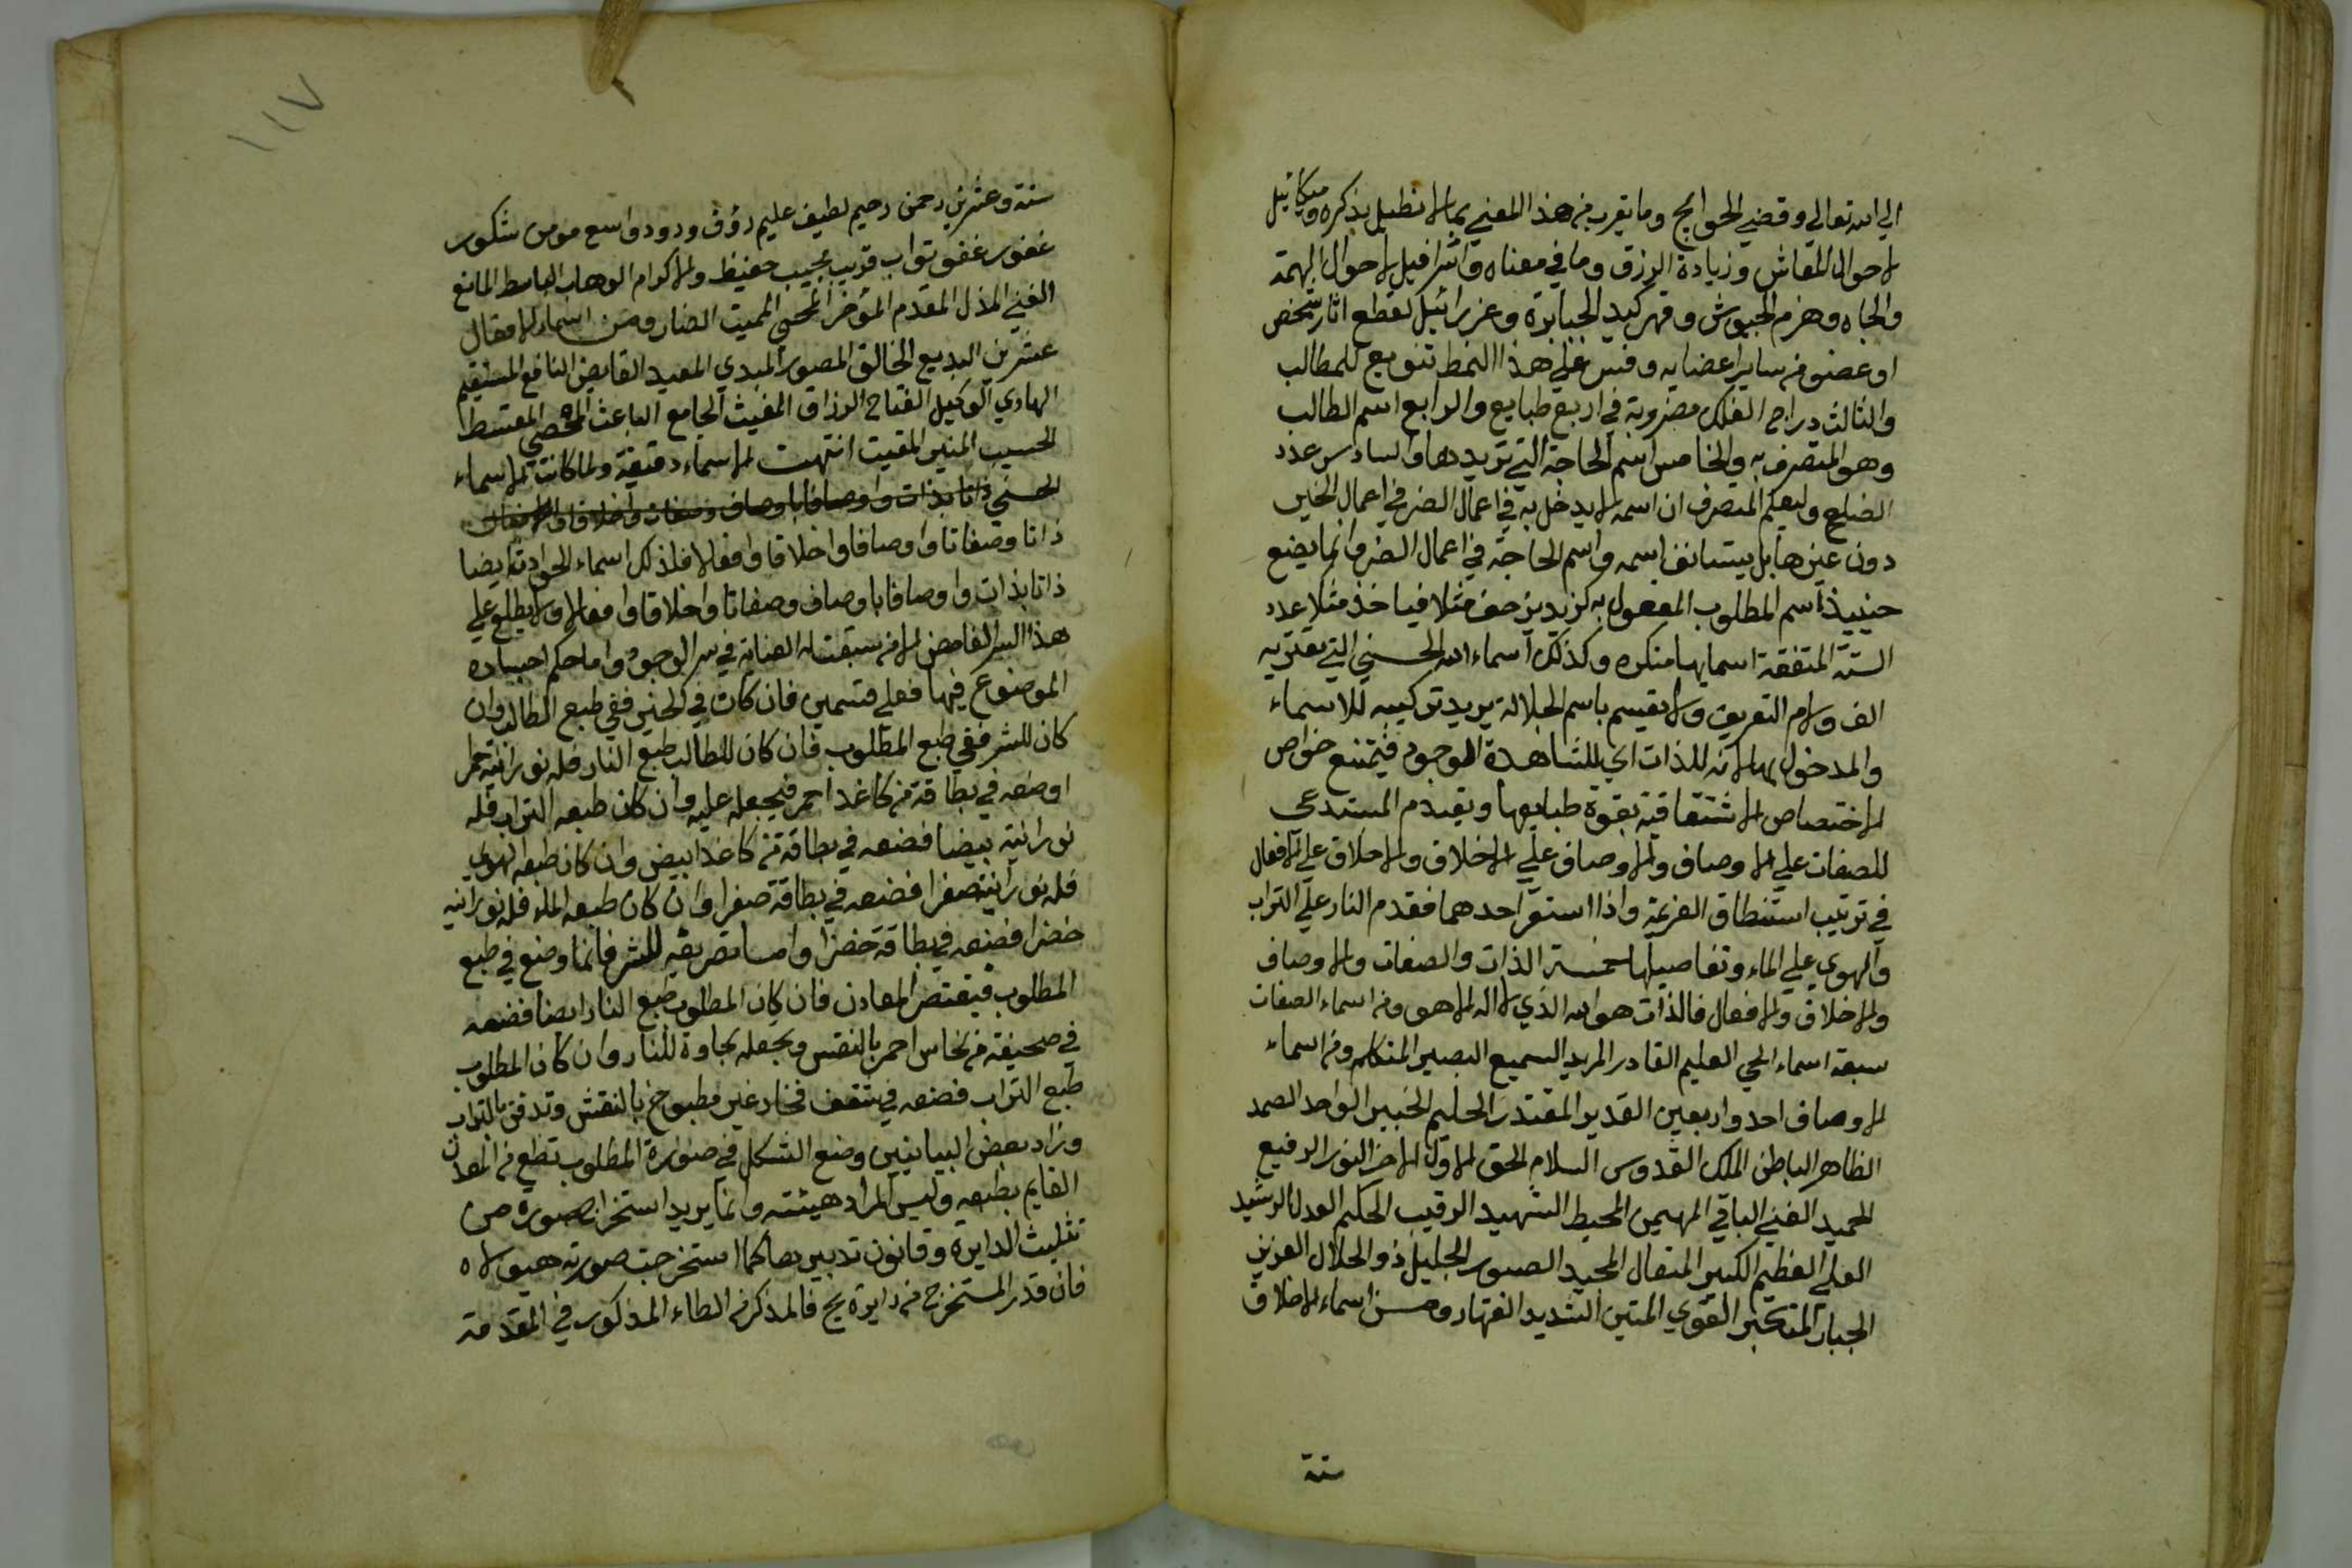 الي الله تعالي وقضي الحوايج وما يقرب من هذا المعني بما لا نطيل بذكره وميكائيل
لاحوال المعاش وزيادة الرزق وما في معناه واسرافيل لاحوال الهمة
والجاه وهزم الجيوش وقهر كيد الجبابرة وعزرائيل لقطع اثار شخص
او عضو من ساير اعضايه وقس علي هذا النمط تنويع للمطالب
والثالث دراج الفلك مضروبة في اربع طبايع والرابع اسم الطالب
وهو المتصرف به والخامس اسم الحاجة التي تريدها والسادس عدد
الضلع وليعلم المتصرف ان اسمه لا يدخل به في اعمال الضر في اعمال الخير
دون غيرها بل يستانف اسمه واسم الحاجة في اعمال الضر وانما يضع
حينيذ اسم المطلوب المعمول به كزيد بن مثلا فياخذ مثلا عدد
الستة المتفقة اسمايها منكره وكذلك اسماء الله الحسني التي تعتريه
الف ولام التعريف ولا يقسم باسم الجلالة يريد تركيبه للاسماء
والمدخول بها لانه للذات اي للشاهدة الموجود فيمتنع خواص
الاختصاص الاشتقاقية بقوة طبايعها ويقدم المستدعي
للصفات علي الاوصاف والاوصاف علي الاخلاق والاخلاق علي الافعال
في ترتيب استنطاق العزيمة واذا استقر احدهما فقدم النار علي التراب
والهوي علي الماء وتفاصيلها خمسة الذات والصفات والاوصاف
والاخلاق والافعال فالذات هو الله الذي لا اله الا هو ومن اسماء الصفات
سبعة اسماء الحي العليم القادر المريد السميع البصير المتكلم ومن اسماء
الاوصاف احد واربعين القدير المقتدر الحليم الخبير الواحد الصمد
الظاهر الباطن الملك القدوس السلام الحق الاول الاخر النور الرفيع
الحميد الغني الباقي المهيمن المحيط الشهيد الرقيب الحكيم العدل الرشيد
العلي العظيم الكبير المتعال المجيد الصبور الجليل ذو الجلال العزيز
الجبار المتكبر القوي المتين الشديد القهار ومن اسماء الاخلاق
ستة
١١٧
ستة وعشرين رحمن رحيم لطيف عليم رؤف ودود واسع مومن شكور
غفور عفو تواب قريب مجيب حفيظ والاكرام الوهاب الباسط المانع
الغني المذل المقدم المؤخر المحيي المميت الضار ومن اسماء الافعال
عشرين البديع الخالق المصور المبدي المعيد القابض النافع المنتقم
الهادي الوكيل الفتاح الرزاق المغيث الجامع الباعث المحصي المقسط
الحسيب المتين المقيت انتهت الاسماء دقيقة ولما كانت الاسماء
الحسني ذاتا بذات واوصافا باوصاف وصفات واخلاقا وافعال
ذاتا وصفاتا واوصافا واخلاقا وافعالا فلذلك اسماء الحوادث ايضا
ذاتا بذات واوصافا باوصاف وصفاتا واخلاقا وافعالا ولا يطلع علي
هذا السر الغامض الا من سبقت له العناية في سر الوجود واما حكم اجساده
الموضوع فيها فعلي قسمين فان كان في الخير ففي طبع الطالب وان
كان للشر ففي طبع المطلوب فان كان للطالب طبع النار فله نورانية حمر
اوضعه في بطاقة من كاغد احمر فيجعله عليه وان كان طبعه التراب فله
نورانية بيضا فضعه في بطاقة من كاغد ابيض وان كان طبعه الهوي
فله نورانية صفرا فضعه في بطاقة صفرا وان كان طبعه الماء فله نورانية
خضرا فضعه في بطاقة خضرا واما تصريفه للشر فانما وضع في طبع
المطلوب فيقتصر المعادن فان كان المطلوب طبع النار ايضا فضعه
في صحيفة من نحاس احمر بالنقش ويجعله مجاورة للنار وان كان المطلوب
طبع التراب فضعه في شقف فخار غير مطبوخ بالنقش وتدفن بالتراب
وزاد بعض البيانيين وضع الشكل في صورة المطلوب تطبع من المعدن
القايم بطبعه وليس المراد هيئته وانما يريد استخراج صورة من
تثليث الدايرة وقانون تدبير بها كلما استخرجت صورته هيولاه
فان قدر المستخرج من دايرة يج فالمذكر من الطاء المذكور في المقدمة